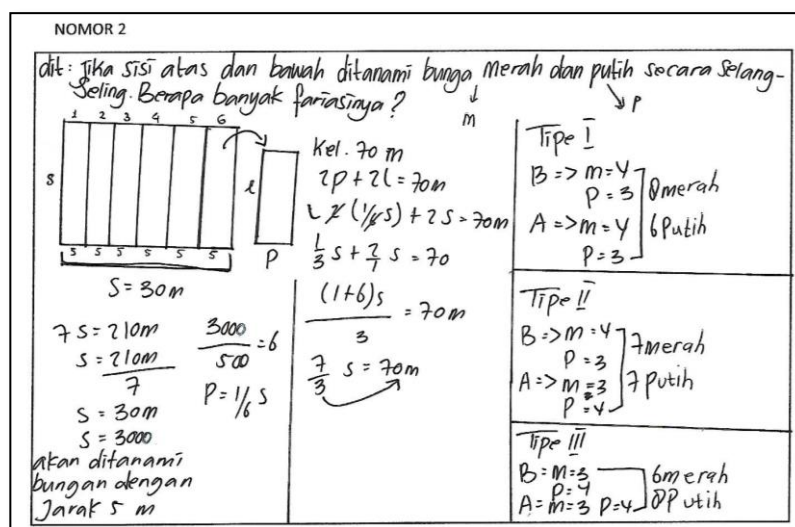 NOMOR 2
dit : Jika sisi atas dan bawah ditanami bunga merah dan putih secara selang-
seling. Berapa banyak fariasinya?
m
P
1 2 3 4 5 6
s
5 5 5 5 5 5
S = 30m
l
P
7S = 210m
S = 210m
7
S = 30m
S = 3000
akan ditanami
bungan dengan
Jarak 5 m
3000
500
=6
P = 1/6 S
Kel. 70 m
2p + 2l = 70m
2 (1/6s) + 2s = 70m
1/3 s + 2/1 s = 70
(1+6)s
3
= 70m
7/3 s = 70m
Tipe I
B => m = 4
P = 3
A => m = 4
P = 3
8 merah
6 Putih
Tipe II
B => m = 4
P = 3
A => m = 3
P = 4
7 merah
7 putih
Tipe III
B = m = 3
P = 4
A = m = 3 P = 4
6 merah
8 Putih